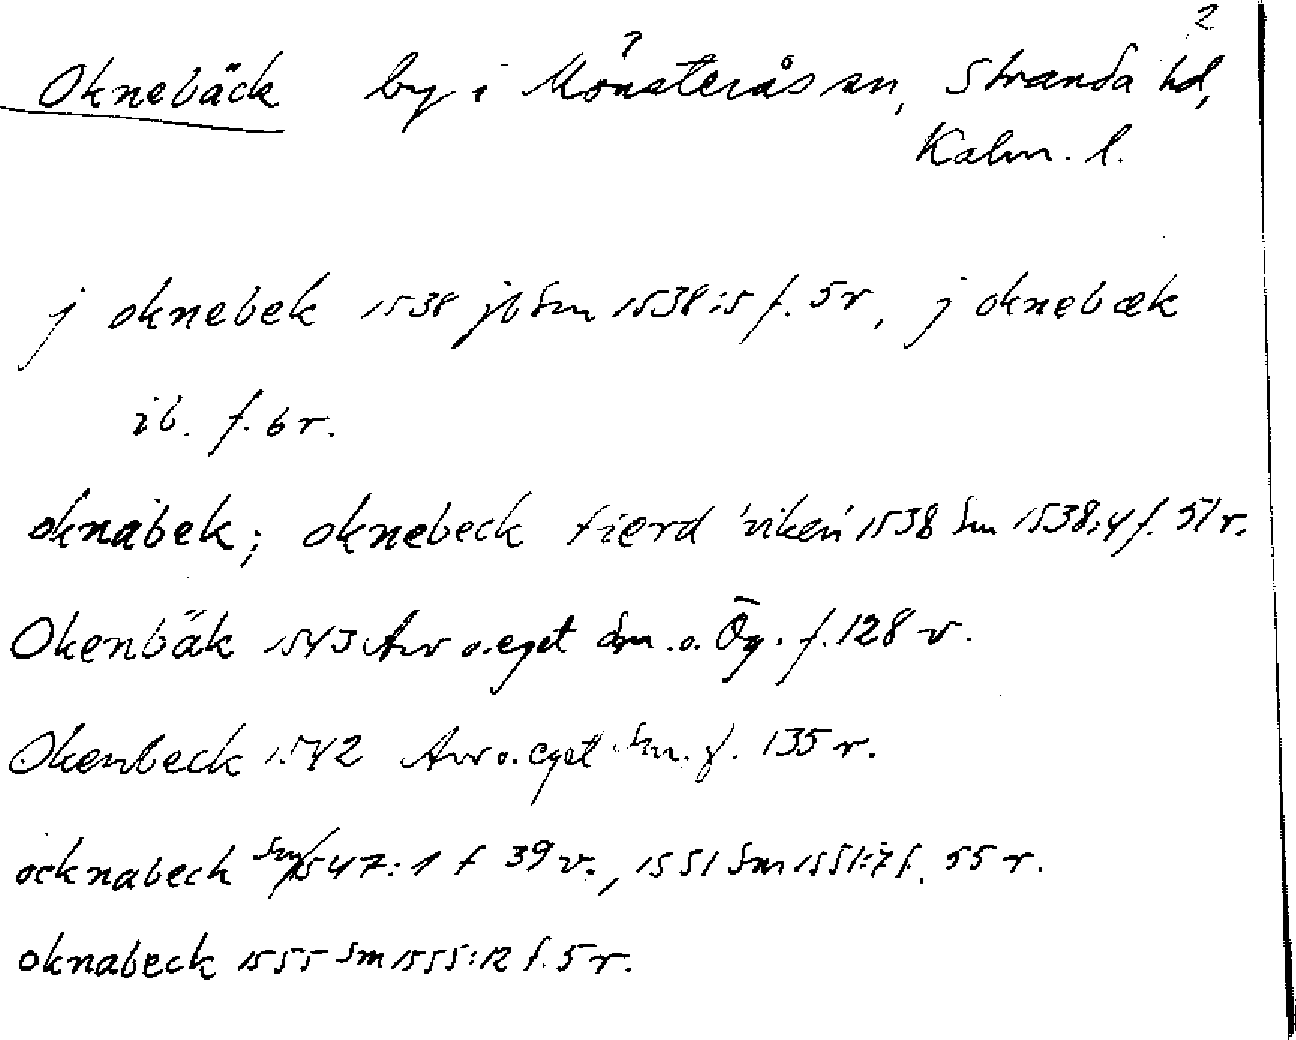 2
Oknebäck by i Mönsterås sn, Stranda hd,
Kalm. l.
j oknebek 1538 jb Sm 1538:5 f. 5r, j oknebæk
ib. f. 6r.
oknabek; oknebeck fierd 'viken' 1538 Sm 1538:4 f. 51r.
Okenbäk 1543 Arv o. eget Sm. o. Ög. f. 128 v.
Okenbeck 1542 Arv o. eget Sm. f. 135 r.
ocknabeck Sm 1547:1 f 39 v., 1551 Sm 1551:7 f. 55 r.
oknabeck 1555 Sm 1555:12 f. 5 r.